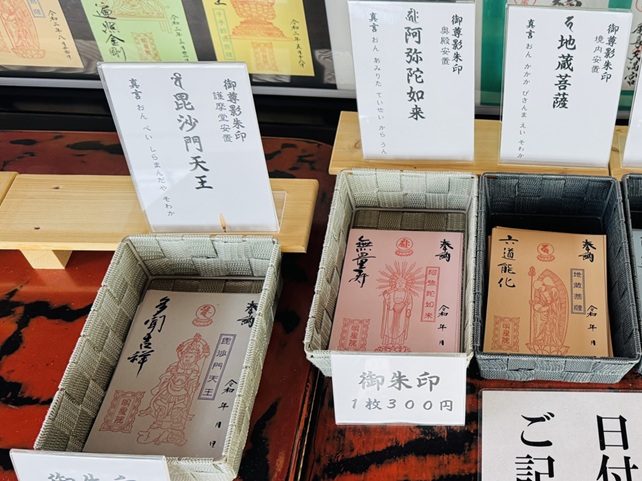 遍照金剛
令和二年三月吉日
御尊影朱印
護摩堂安置
毘沙門天王
真言 おん べい しらまんだや そわか
御尊影朱印
奥殿安置
阿弥陀如来
真言 おん あみりた ていせい から うん
御尊影朱印
境内安置
地蔵菩薩
真言 おん かかか びさんま えい そわか
奉納
多聞吉祥
毘沙門天王
令和 年 月 日
奉納
無量寿
阿弥陀如来
令和 年 月
奉納
六道能化
地蔵菩薩
令和 年 月
御朱印
1枚300円
御朱印
日付
ご記